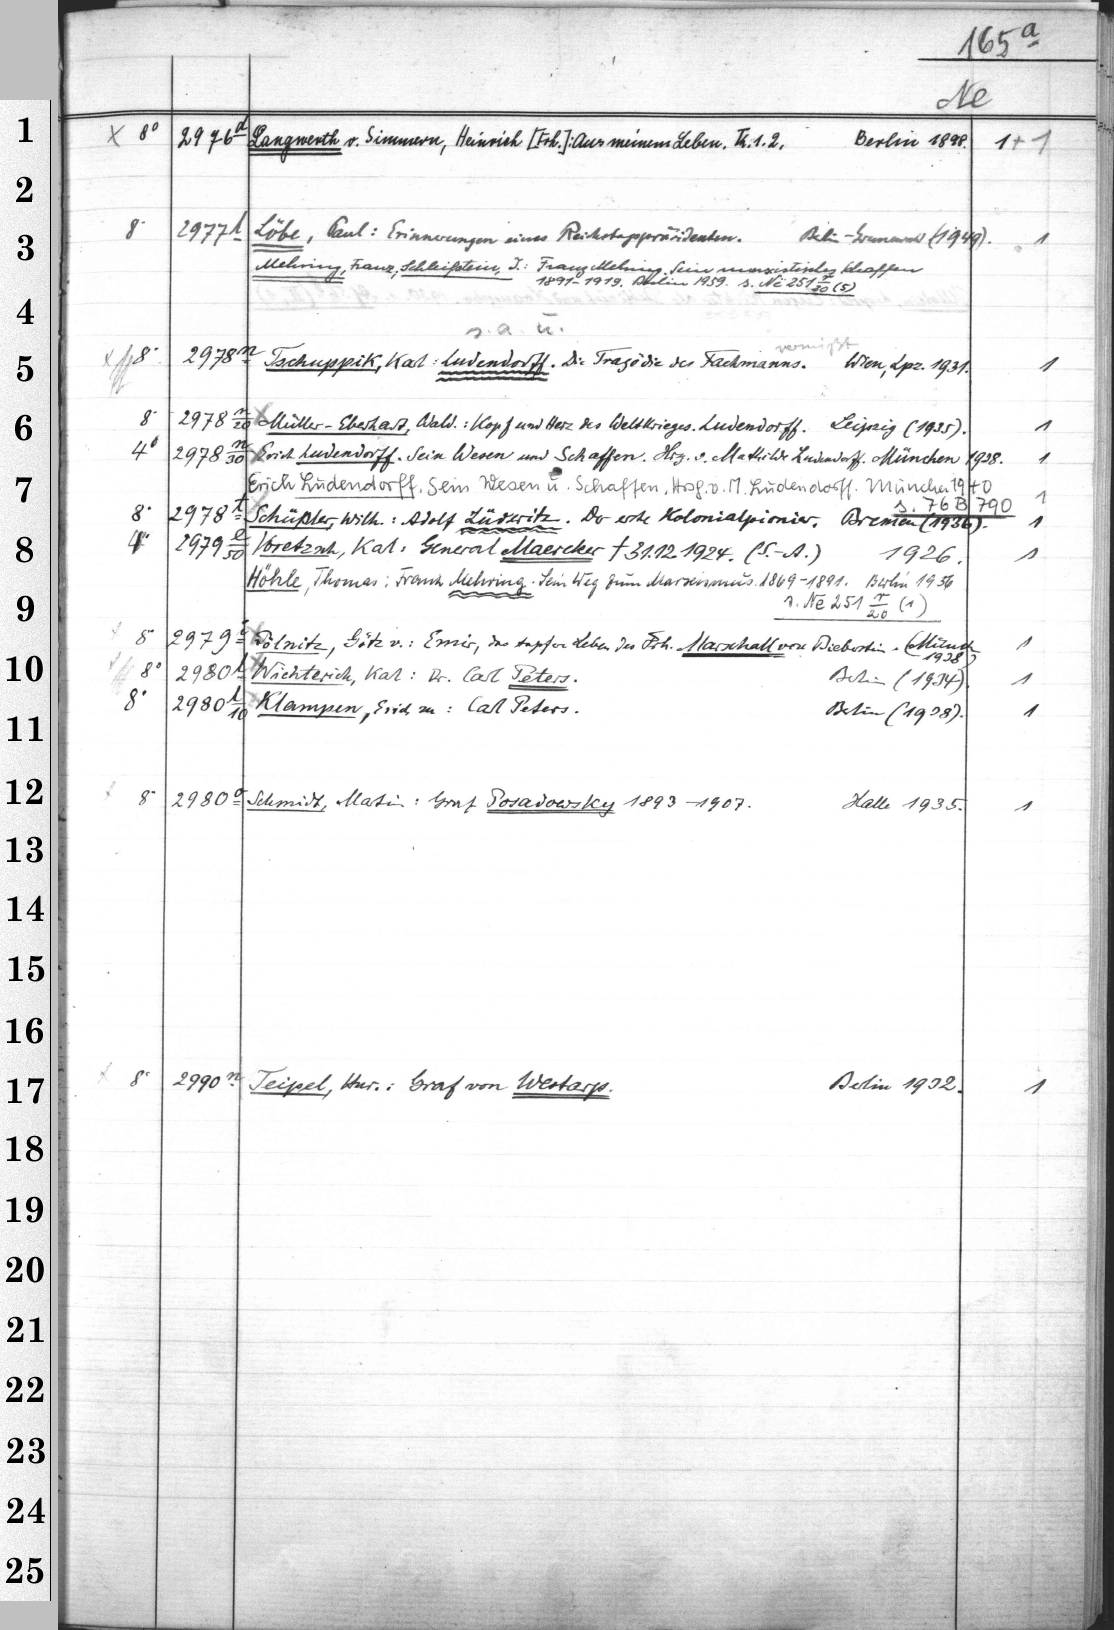 165a
Ne
1
X 8° 2976d Langwerth v. Simmern, Heinrich [Frh.]: Aus meinem Leben. Th. 1.2. Berlin 1898. 1+1
2
3
8° 2977l Löbe, Paul: Erinnerungen eines Reichstagspräsidenten. Berlin-Grunewald (1949). 1
Mehring, Franz, Schleifstein, J.: Franz Mehring. Sein marxistisches Schaffen
1891-1919. Berlin 1959. s. Ne 251 r/20 (5)
4
s. a. u.
vermißt
5
8° 2978m Tschuppik, Karl: Ludendorff. Die Tragödie des Fachmanns. Wien, Lpz. 1931. 1
6
8° 2978 n/20 Müller-Eberhart, Wald.: Kopf und Herz des Weltkrieges. Ludendorff. Leipzig (1935). 1
4° 2978 n/30 Erich Ludendorff. Sein Wesen und Schaffen. Hrg. v. Mathilde Ludendorff. München 1938. 1
7
Erich Ludendorff. Sein Wesen u. Schaffen. Hrsg. v. M. Ludendorff. München 1940 1
s. 76 B 790
8° 2978t Schüßler, Wilh.: Adolf Lüderitz. Der erste Kolonialpionier. Bremen (1936). 1
8
4° 2979 e/50 Voretzsch, Karl: General Maercker † 31.12.1924. (S.-A.) 1926. 1
Höhle, Thomas: Franz Mehring. Sein Weg zum Marxismus. 1869-1891. Berlin 1956
s. Ne 251 r/20 (1)
9
8° 2979i Pölnitz, Götz v.: Emir, das tapfere Leben des Frh. Marschall von Bieberstein. (Münch. 1938) 1
10
8° 2980k Wichterich, Karl: Dr. Carl Peters. Berlin (1934). 1
8° 2980 l/10 Klampen, Erich zu: Carl Peters. Berlin (1938). 1
11
12
8° 2980o Schmidt, Martin: Graf Posadowsky 1893-1907. Halle 1935. 1
13
14
15
16
17
8° 2990n Teipel, Hnr.: Graf von Westarp. Berlin 1932. 1
18
19
20
21
22
23
24
25